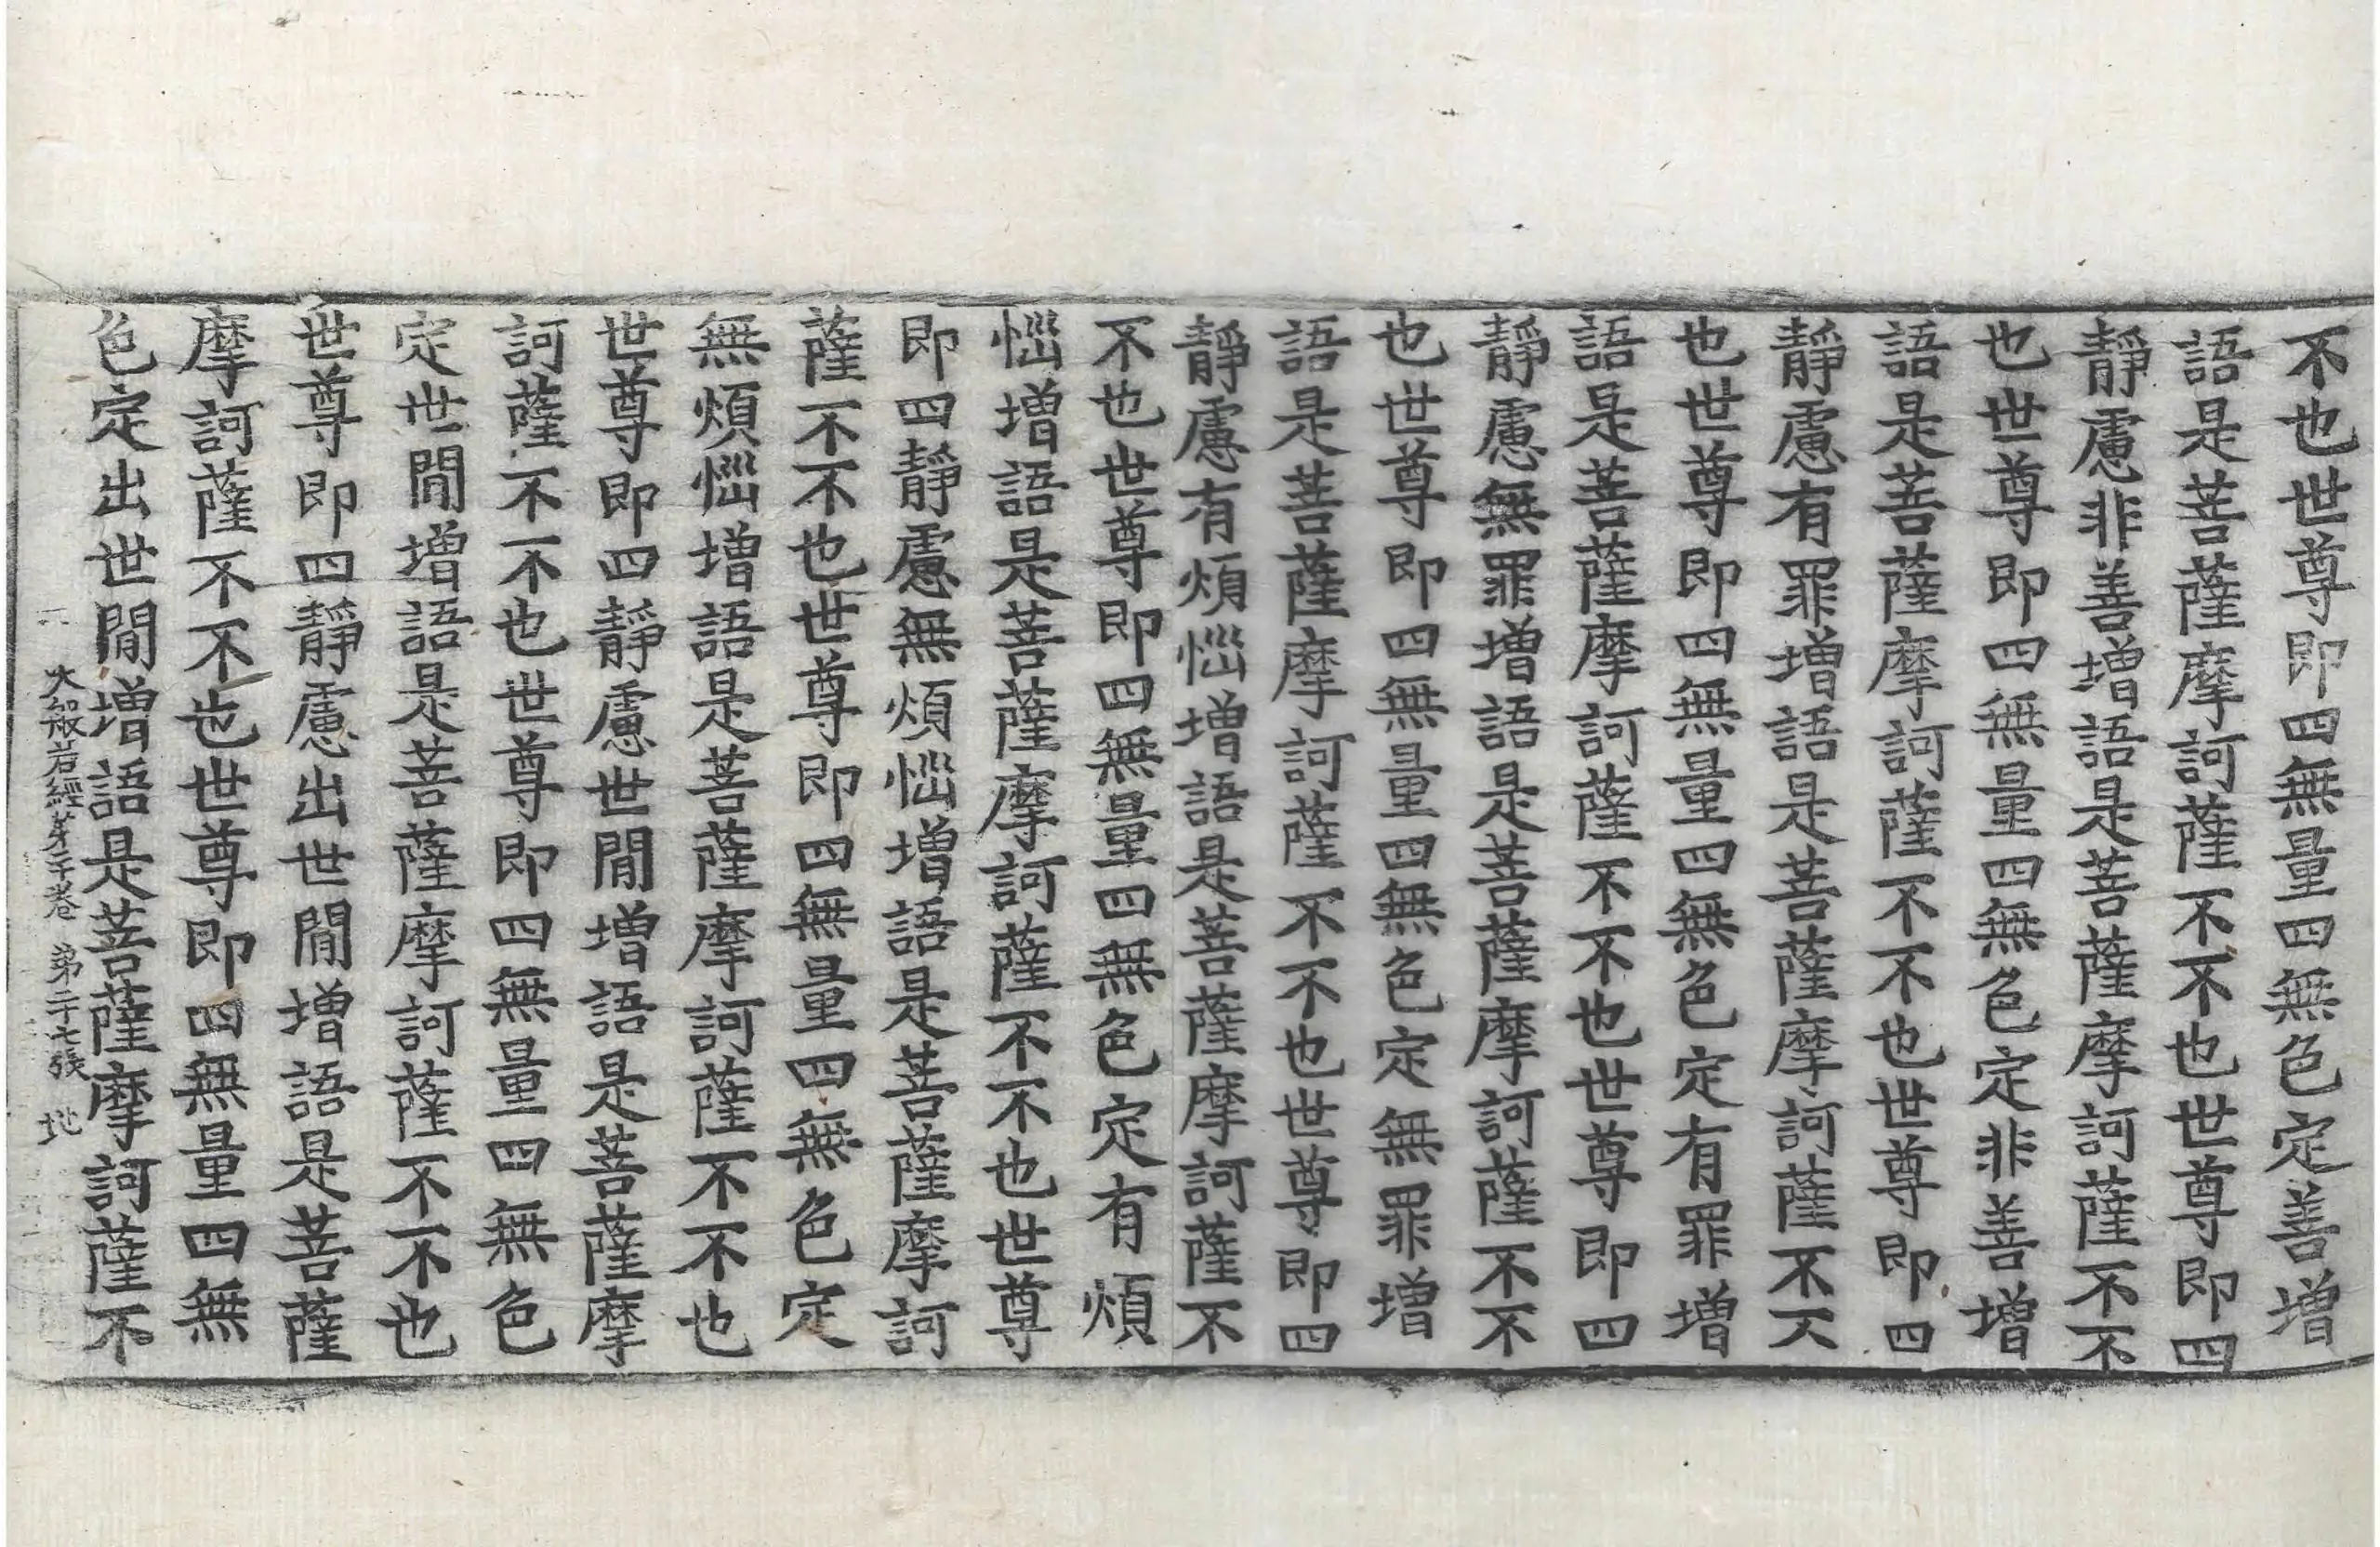 不也世尊即四無量四無色定善增
語是菩薩摩訶薩不不也世尊即四
靜慮非善增語是菩薩摩訶薩不不
也世尊即四無量四無色定非善增
語是菩薩摩訶薩不不也世尊即四
靜慮有罪增語是菩薩摩訶薩不不
也世尊即四無量四無色定有罪增
語是菩薩摩訶薩不不也世尊即四
靜慮無罪增語是菩薩摩訶薩不不
也世尊即四無量四無色定無罪增
語是菩薩摩訶薩不不也世尊即四
靜慮有煩惱增語是菩薩摩訶薩不
不也世尊即四無量四無色定有煩
惱增語是菩薩摩訶薩不不也世尊
即四靜慮無煩惱增語是菩薩摩訶
薩不不也世尊即四無量四無色定
無煩惱增語是菩薩摩訶薩不不也
世尊即四靜慮世間增語是菩薩摩
訶薩不不也世尊即四無量四無色
定世間增語是菩薩摩訶薩不不也
世尊即四靜慮出世間增語是菩薩
摩訶薩不不也世尊即四無量四無
色定出世間增語是菩薩摩訶薩不
大般若經第二十卷 第二十七張 地